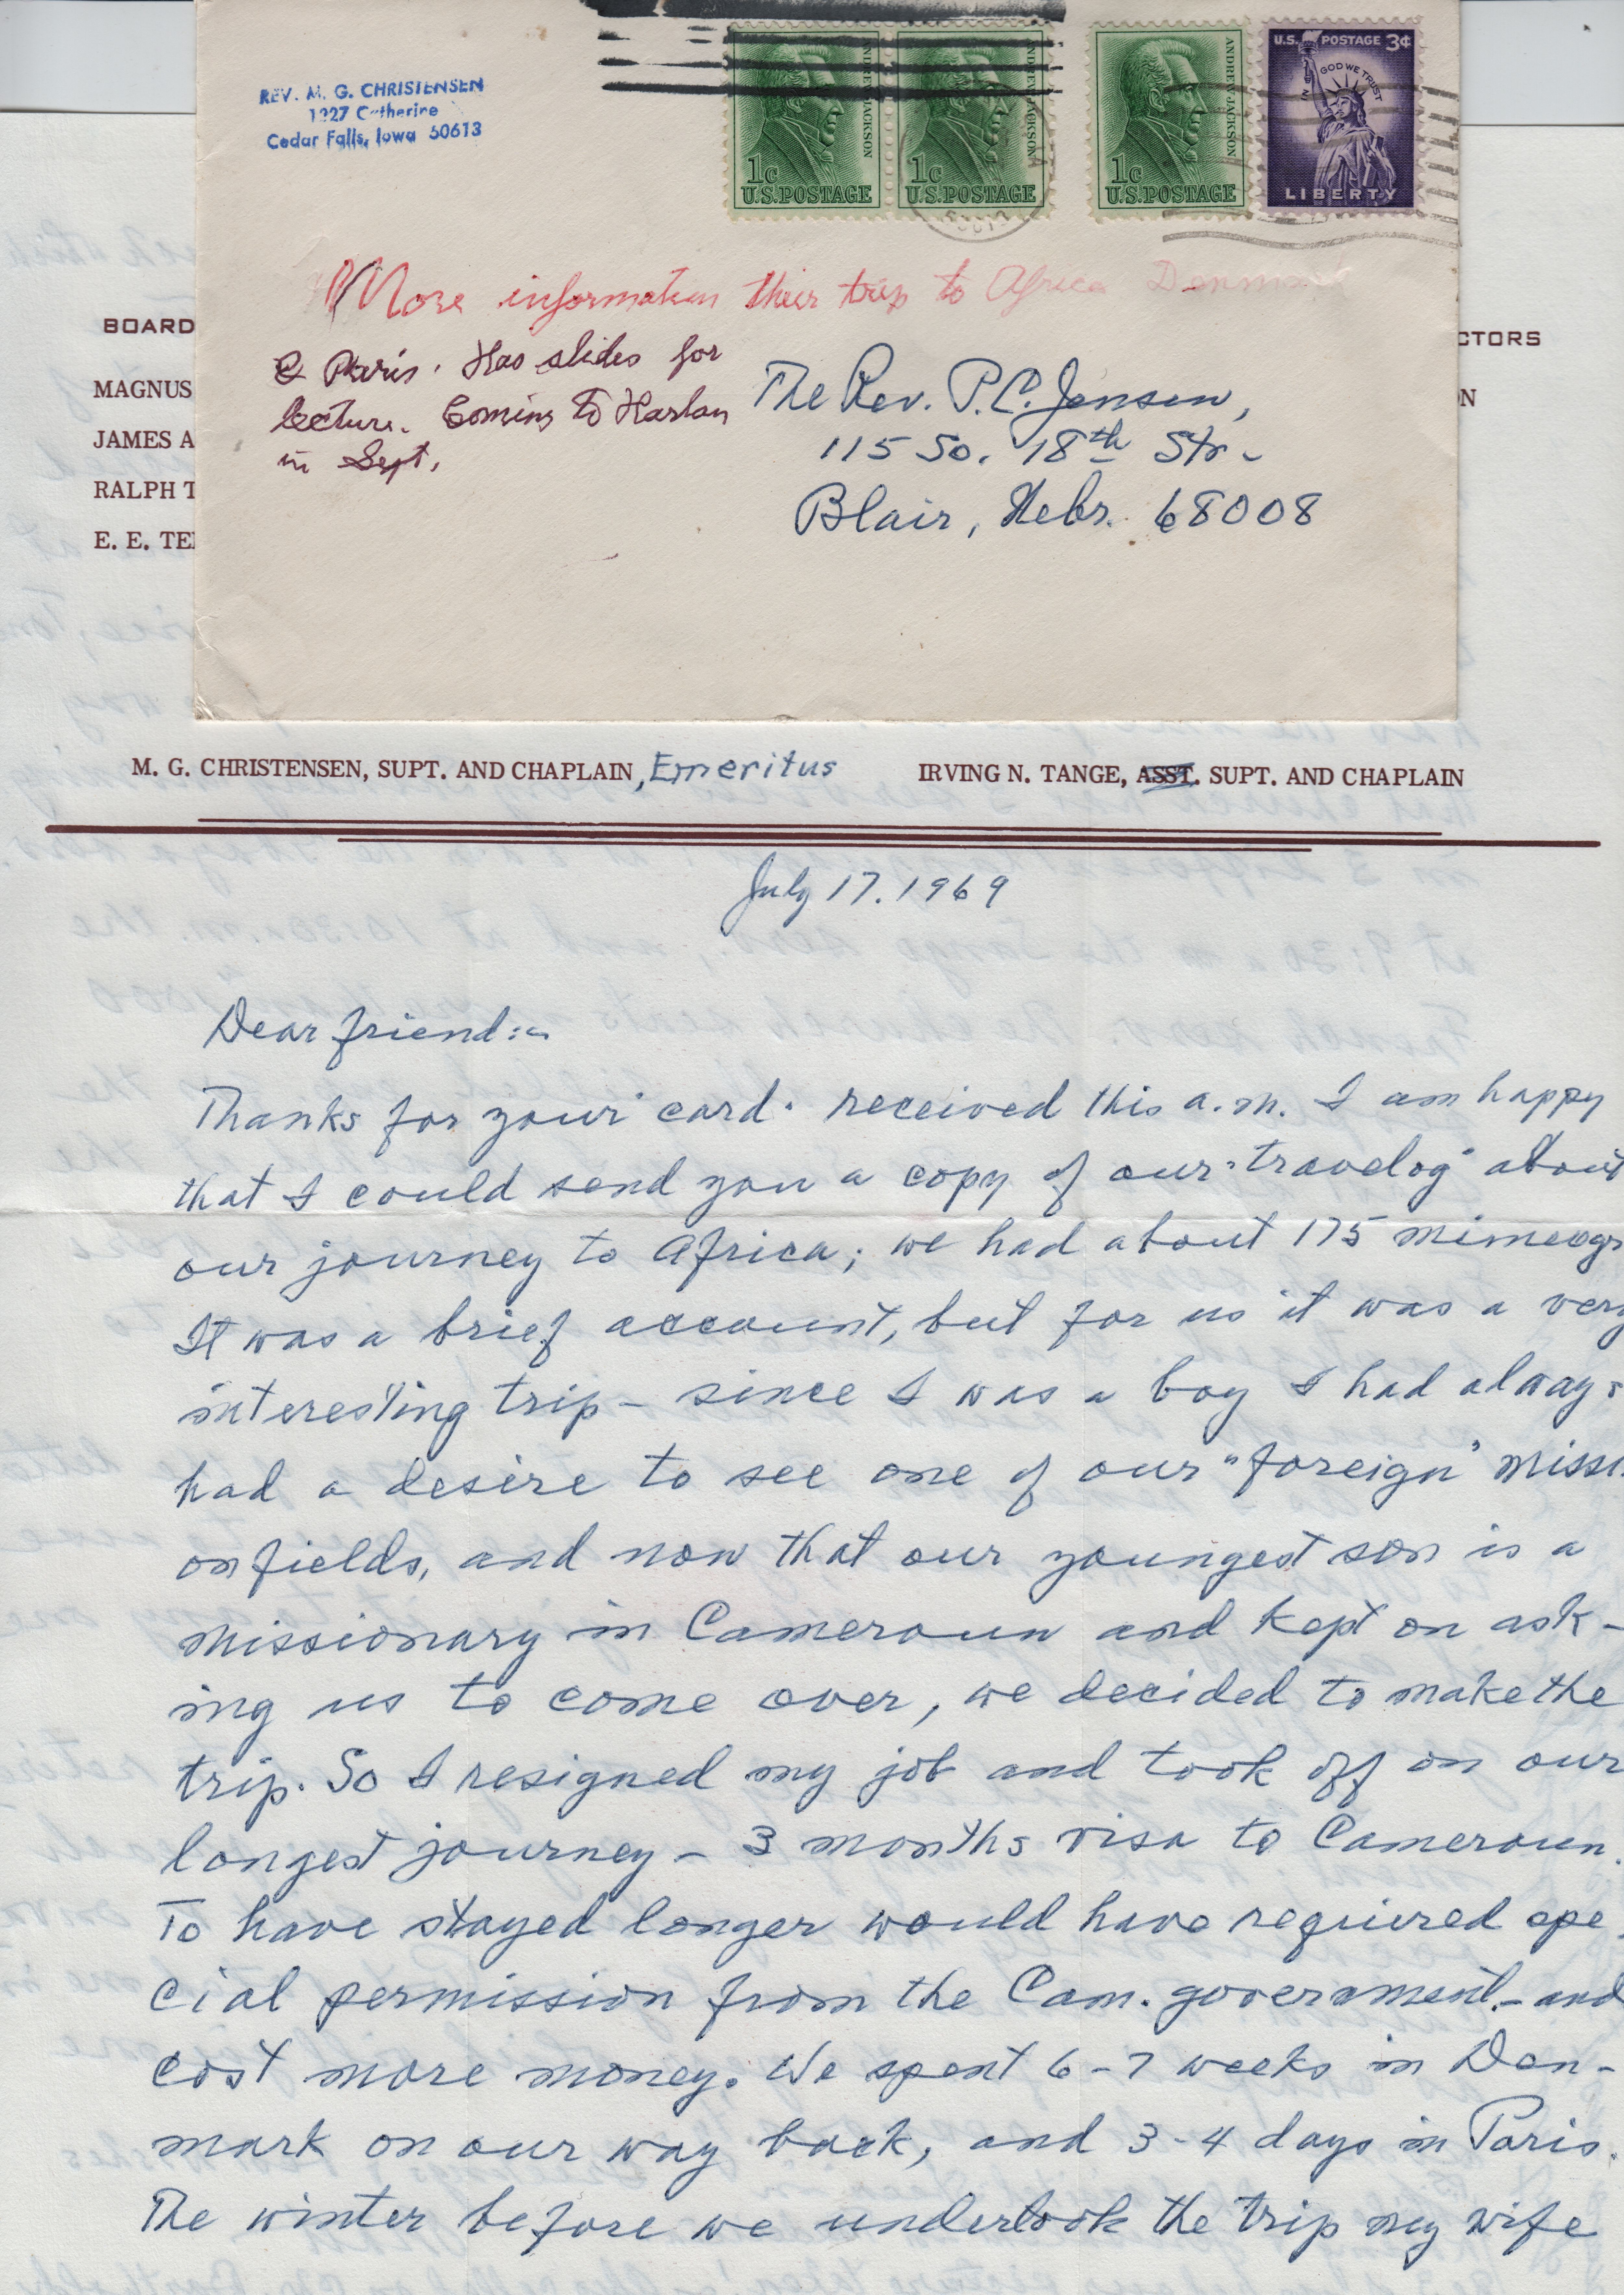 REV. M. G. CHRISTENSEN
1927 Catherine
Cedar Falls, Iowa 50613
ANDREW JACKSON
1c
U.S. POSTAGE
ANDREW JACKSON
1c
U.S. POSTAGE
ANDREW JACKSON
1c
U.S. POSTAGE
U.S. POSTAGE 3¢
IN GOD WE TRUST
LIBERTY
More information their trip to Africa Denmark
& Paris. Has slides for
lecture. Coming to Harlan
in Sept.
The Rev. P.C. Jensen,
115 So. 18th Str.
Blair, Nebr. 68008
BOARD
CTORS
MAGNUS
ON
JAMES A
RALPH T
E. E. TE
M. G. CHRISTENSEN, SUPT. AND CHAPLAIN, Emeritus
IRVING N. TANGE, ASST. SUPT. AND CHAPLAIN
July 17. 1969
Dear friend:-
Thanks for your card. received this a.m. I am happy
that I could send you a copy of our "travelog" about
our journey to Africa; we had about 175 mimeogr
It was a brief account, but for us it was a very
interesting trip - since I was a boy I had always
had a desire to see one of our "foreign" missi
on fields, and now that our youngest son is a
missionary in Cameroun and kept on ask-
ing us to come over, we decided to make the
trip. So I resigned my job and took off on our
longest journey - 3 months visa to Cameroun.
To have stayed longer would have required spe
cial permission from the Cam. government - and
cost more money. We spent 6-7 weeks in Den-
mark on our way back, and 3-4 days in Paris.
The winter before we undertook the trip my wife